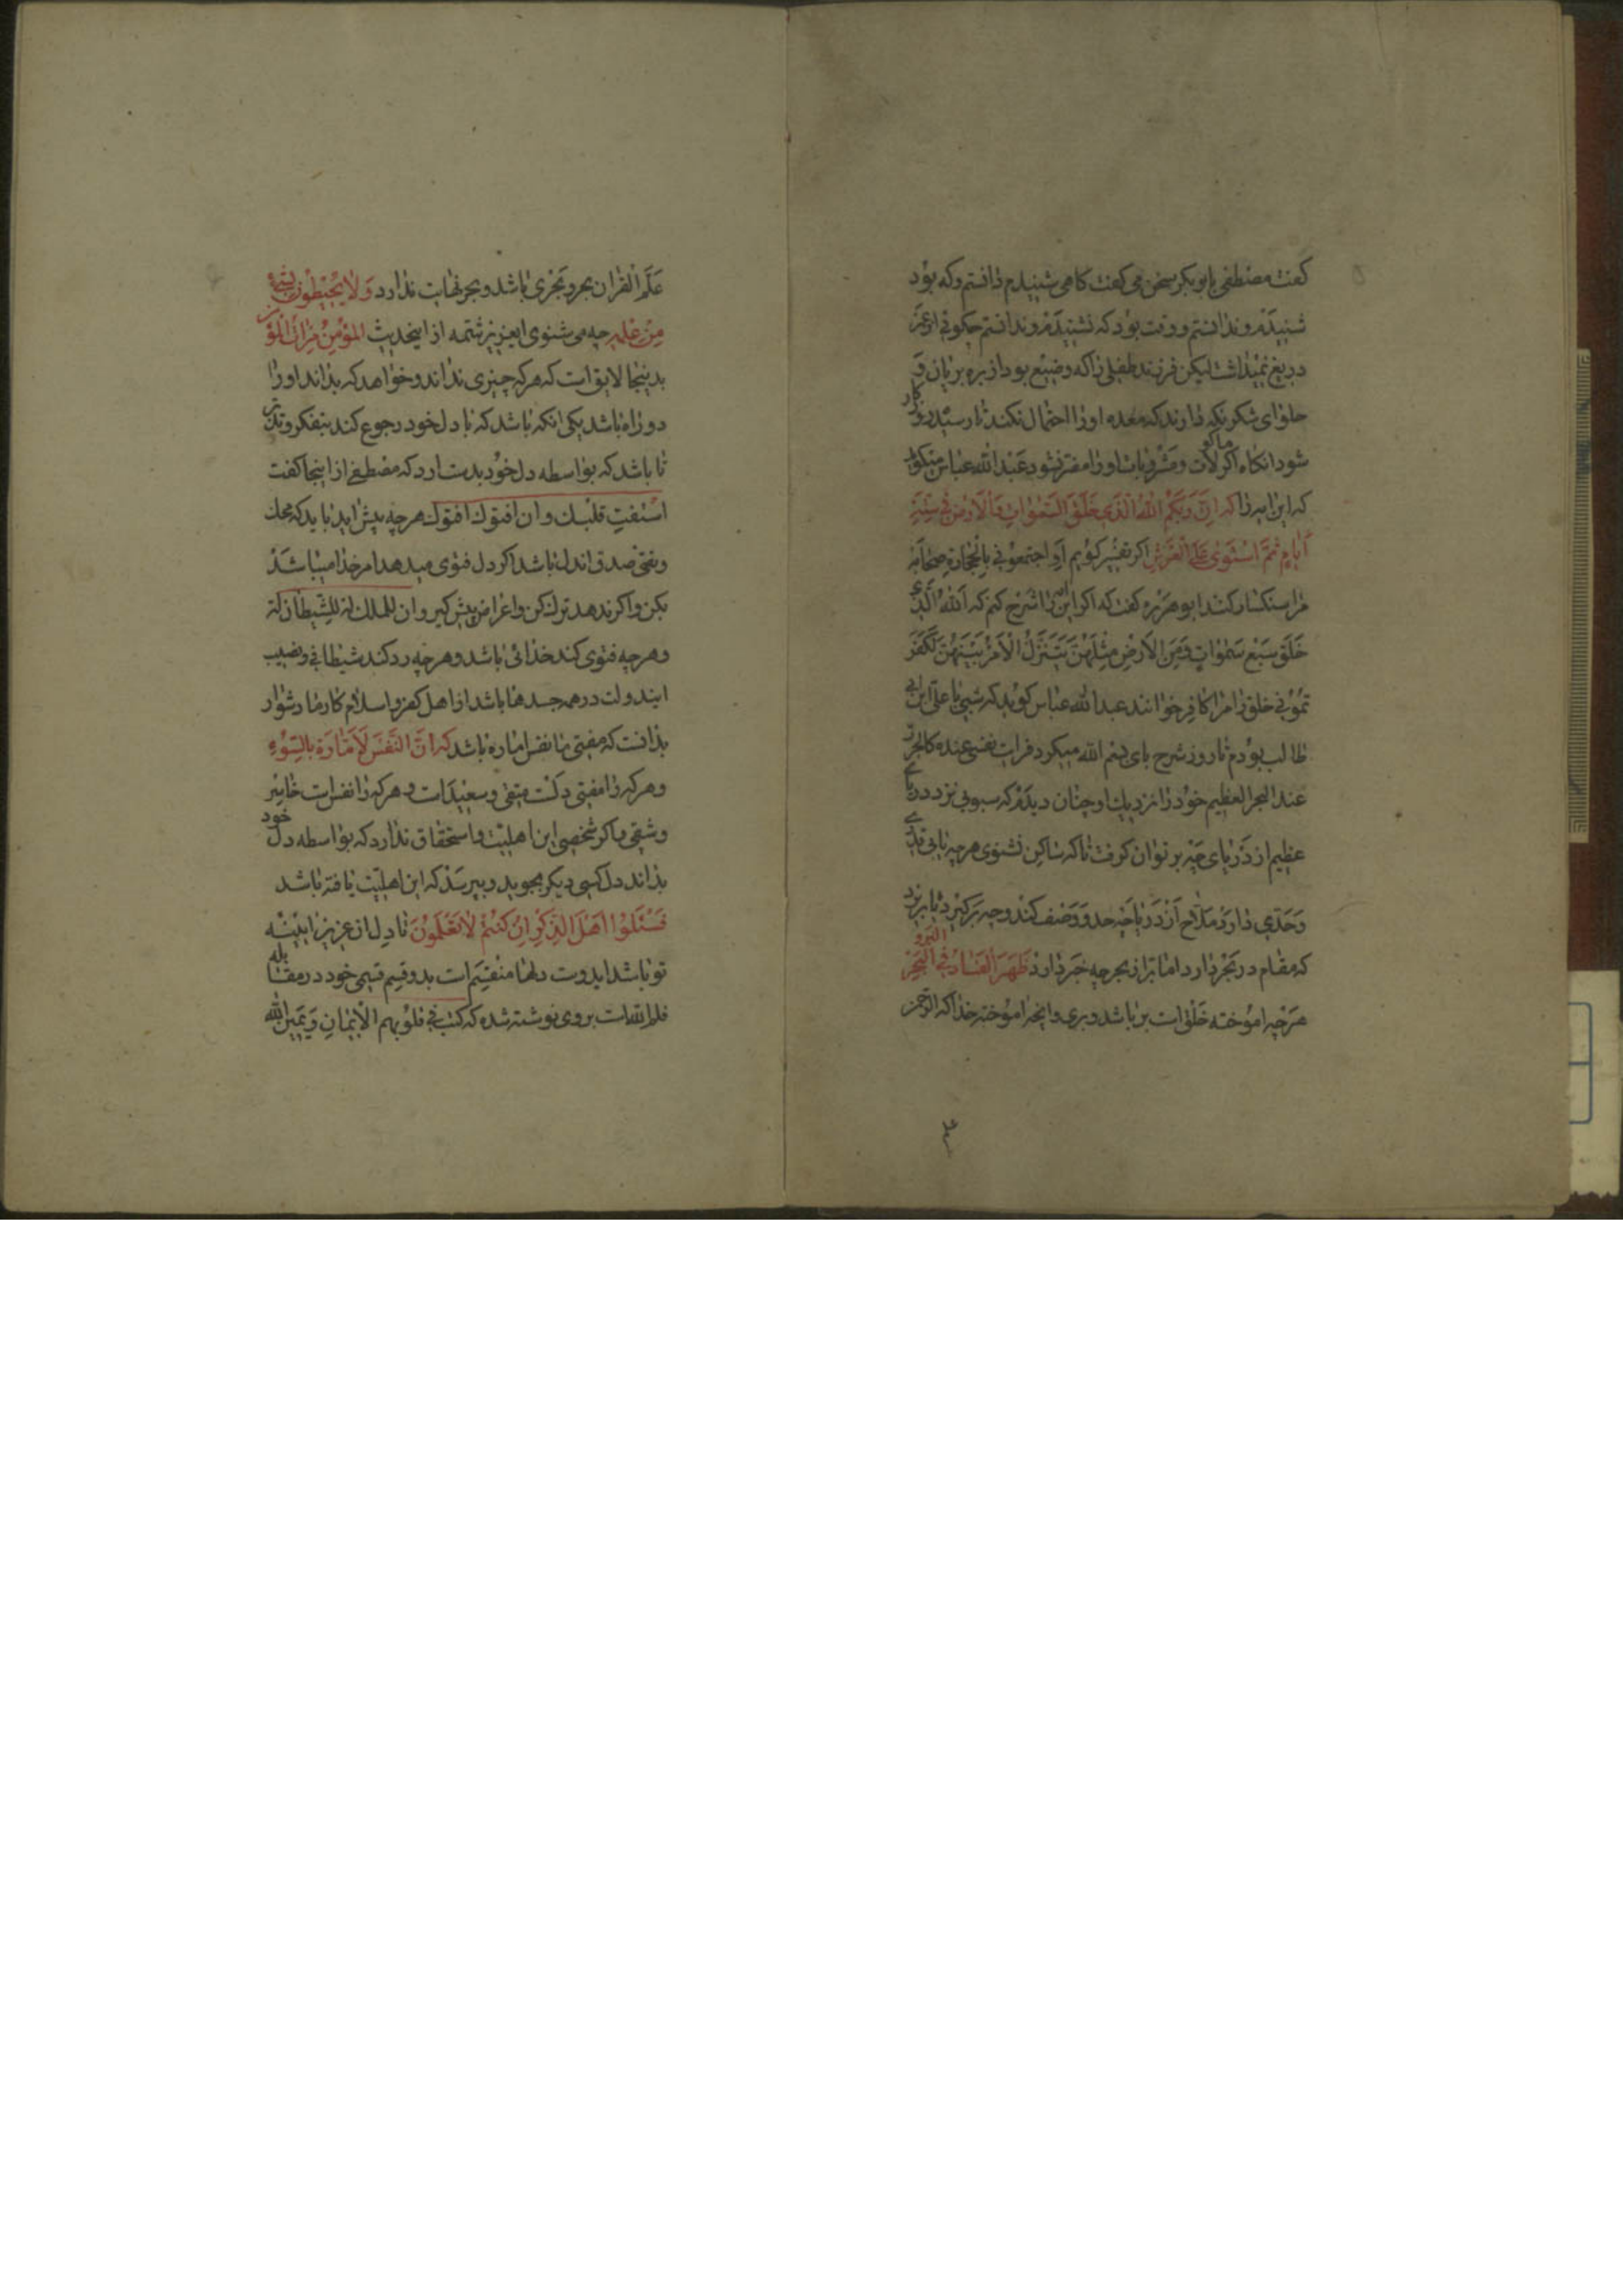 گفت مصطفی با ابوبکر سخن می گفت گاهی شنیدم دانستم وگه بود
شنیدم وندانستم ووقت بود که نشنیدم وندانستم چگوئی از عمر
دریغ نمیداشت لیکن فرزند طفلی را که رضیع بود از بره بریان و
حلوای شکر نگه دارند که معده او را احتمال نکند تا رسیده وکار
شود انگاه ماکولات ومشروبات او را مضر نشود عبدالله عباس میگوید
که این ایه را که اِنَّ رَبَّکُمُ اللهُ الَّذی خَلَقَ السَّمٰوٰاتِ وَالْاَرْضَ فی سِتَّةِ
اَیّٰامٍ ثُمَّ اسْتَوٰی عَلَی الْعَرْشِ اگر تفسیر گویم ای اجتمعونی بالحجارة صحابه
مرا سنگسار کنند ابوهریره گفت که اگر این ایه را شرح کنم که اَللهُ الَّذی
خَلَقَ سَبْعَ سَمٰوٰاتٍ وَمِنَ الْاَرْضِ مِثْلَهُنَّ یَتَنَزَّلُ الْاَمْرُ بَیْنَهُنَّ لَکَفَّرْ
تُمُوْنی خلق مرا کافر خوانند عبدالله عباس گوید که شبی با علی ابن ابی
طالب بودم تا روز شرح بای بسم الله میکرد فرات نفسی عنده کالجرة
عند البحر العظیم خود را نزدیک او چنان دیدم که سبویی نزد دریای
عظیم از دریای چه بر توان گرفت تا که ساکن نشوی هرچه یابی قدری
وحدّی دارد ملّاح از دریا چه حد و وصف کند وچه برگیرد تا برنزد
که مقام در بحر دارد اما بر از بحر چه خبر دارد ظَهَرَ الْفَسٰادُ فی الْبَرِّ وَ الْبَحْرِ
هرچه اموخته خلق است بر باشد وبری وانچه اموخته خدا که الرحمن
علم القران بحر وبحری باشد وبحر نهایت ندارد وَلاٰیُحیطُونَ بِشَیْءٍ
مِنْ عِلْمِهِ چه می شنوی ایعزیز تتمه از اینحدیث المؤمن مراٰة المؤمن
بدینجا لایق است که هرکه چیزی نداند وخواهد که بداند او را
دو راه باشد یکی انکه باشد که با دل خود رجوع کند بتفکر وتدبر
تا باشد که بواسطه دل خود بدست ارد که مصطفی از اینجا گفت
استفت قلبک وان افتوک افتوک هرچه پیش اید باید که محل
ومفتی صدق ان دل باشد اگر دل فتوی میدهد امر خدا میباشد
بکن واگر ندهد ترک کن واعراض پیش گیر وان للملک لمة للشیطان لمة
وهرچه فتوی کند خدائی باشد وهرچه رد کند شیطانی ونصیب
ایندولت در همه جسدها باشد از اهل کفر واسلام کار ما دشوار
بدانست که مفتی ما نفس اماره باشد که اِنَّ النَّفْسَ لَاَمّٰارَةٌ بِالسُّوْءِ
وهرکه را مفتی دلست متقی وسعیدست وهرکه را نفس است خاسر
وشقی واگر شخصی این اهلیت واستحقاق ندارد که بواسطه دل خود
بداند دل کسی دیگر بجوید وبپرسد که این اهلیت یافته باشد
فَسْئَلُوْا اَهْلَ الذِّکْرِ اِنْ کُنْتُمْ لاٰتَعْلَمُوْنَ تا دل ان عزیز ایینه
تو باشد ایدوست دلها منقسم است بدو قسم قسمی خود در مقابله
قلم الله است بروی نوشته شده که کتب فی قلوبهم الایمان ویمین الله